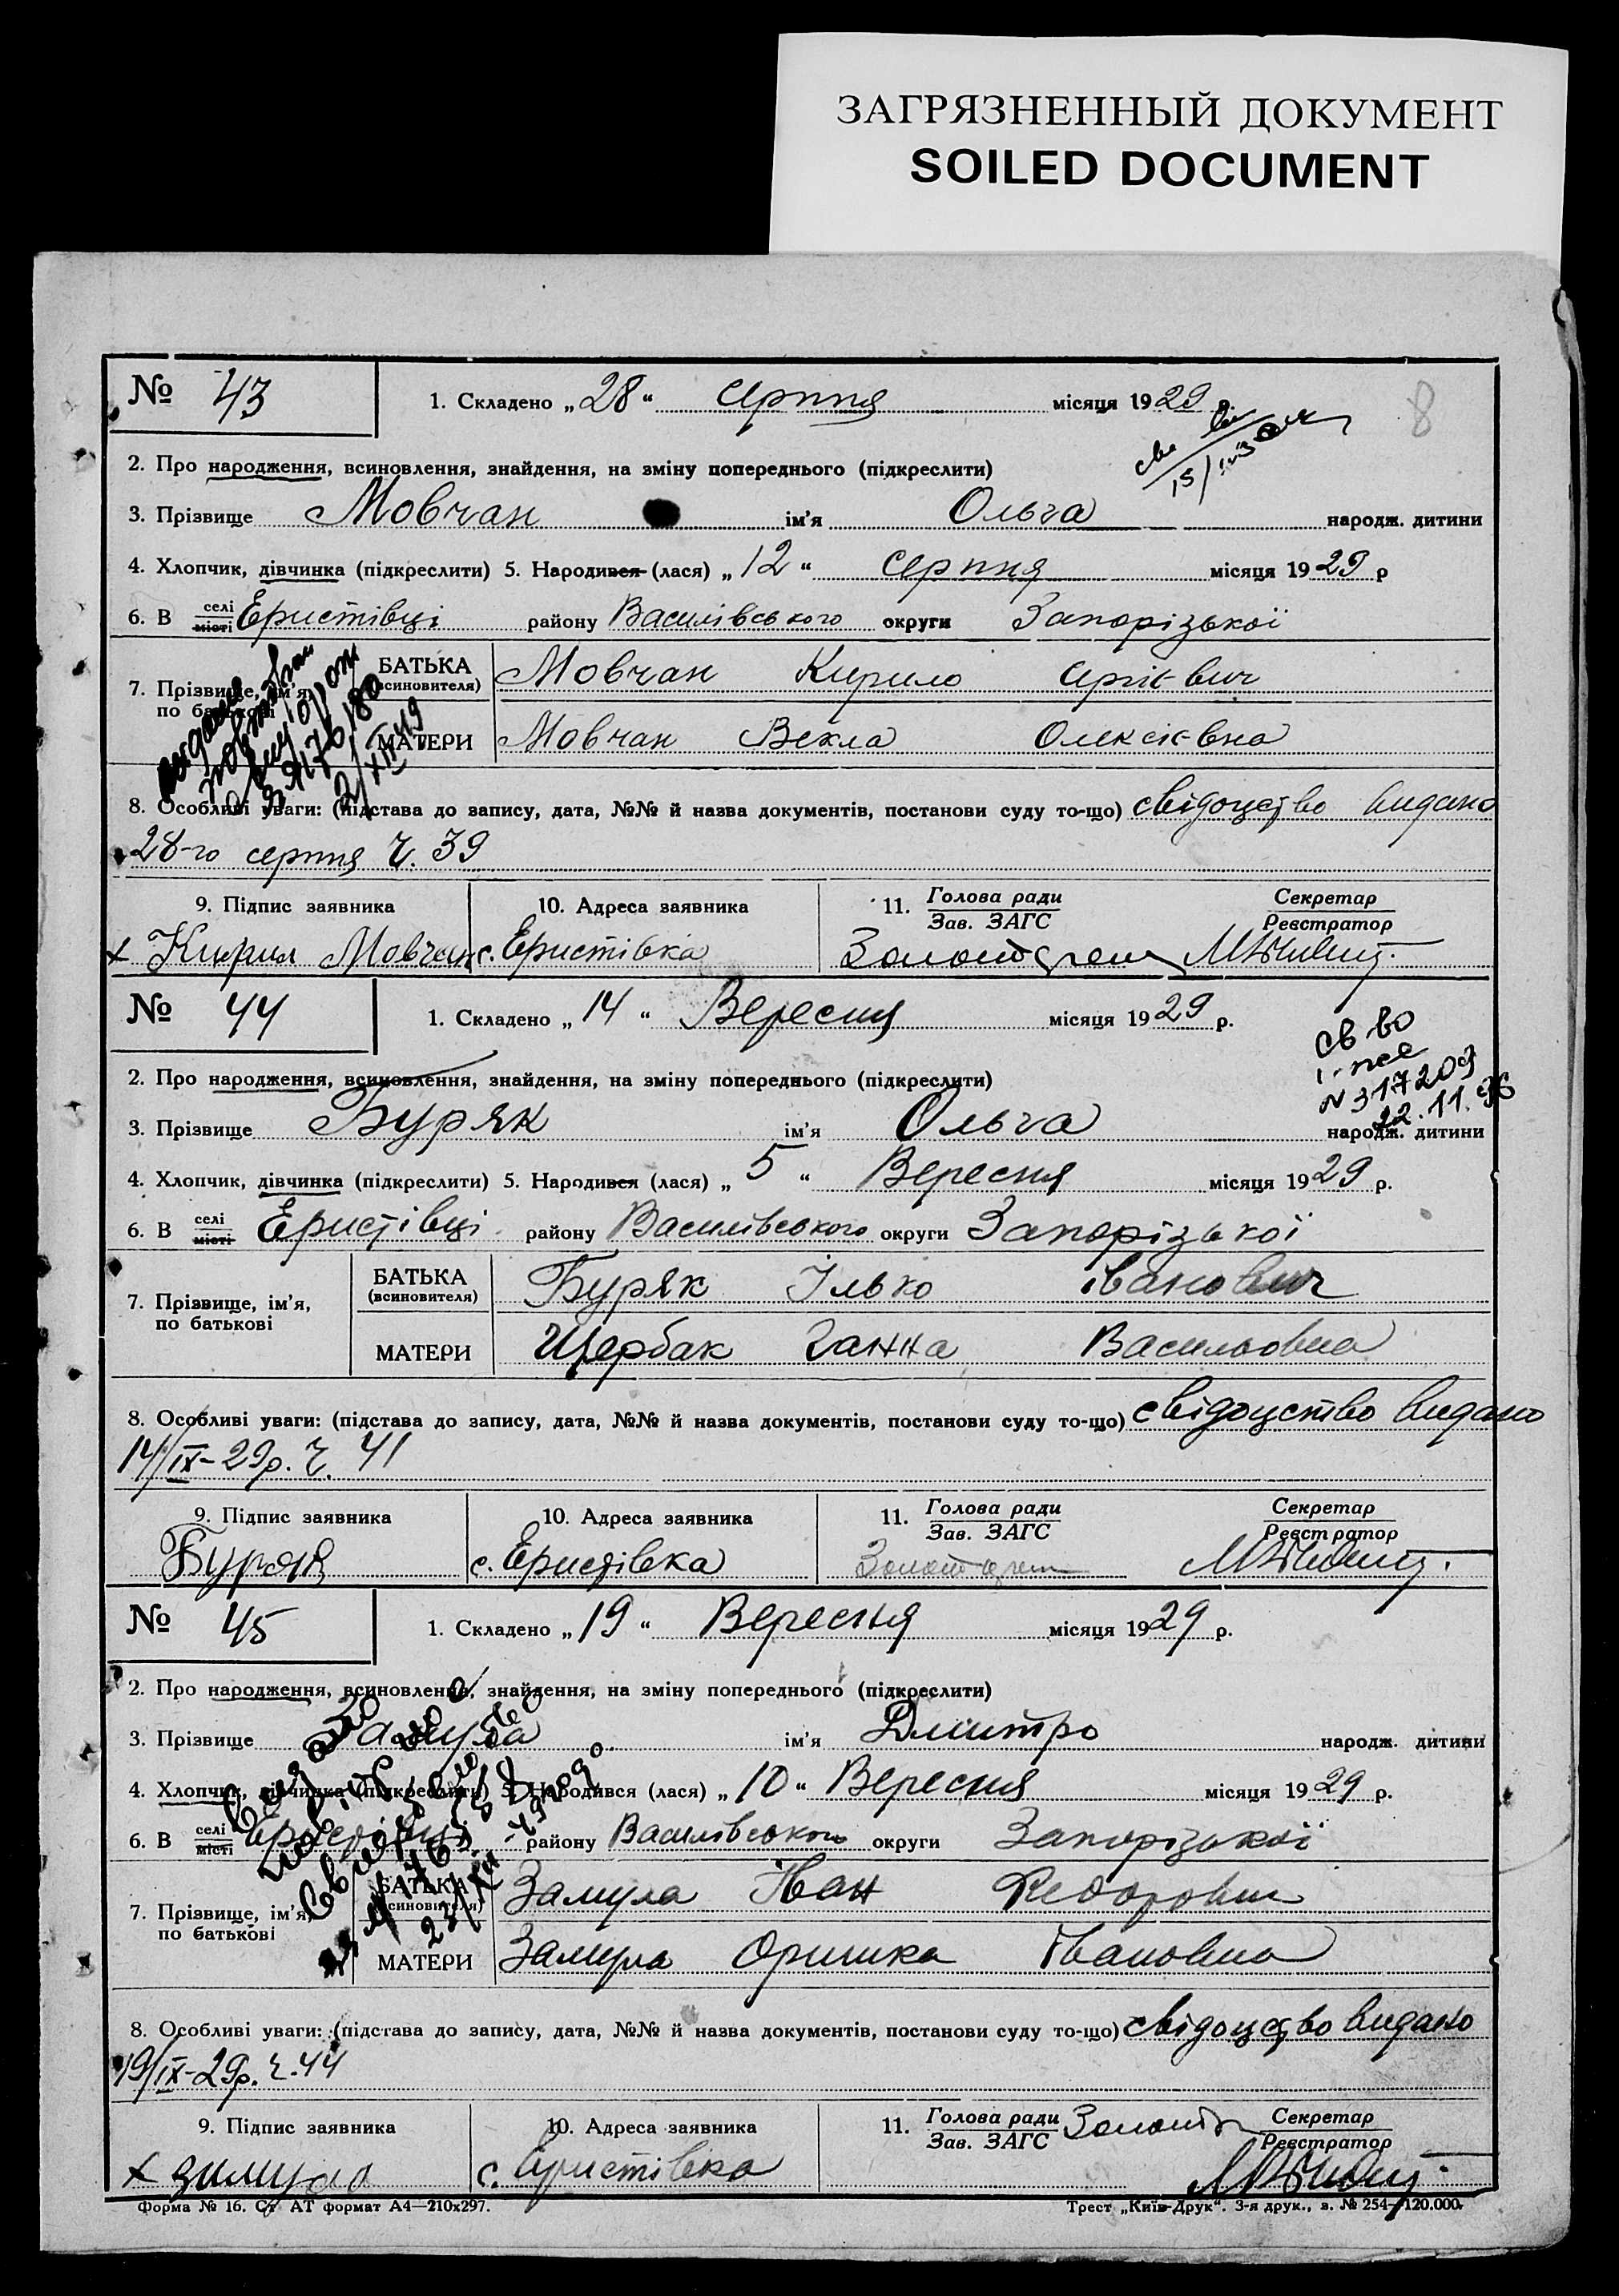 ЗАГРЯЗНЕННЫЙ ДОКУМЕНТ
SOILED DOCUMENT
8
№ 43 1. Складено „28“ серпня місяця 1929 р.
2. Про народження, всиновлення, знайдення, на зміну попереднього (підкреслити)
3. Прізвище Мовчан ім'я Ольга народж. дитини
4. Хлопчик, дівчинка (підкреслити) 5. Народився (лася) „12“ серпня місяця 1929 р
6. В селі місті Еристівці району Василівського округи Запорізької
7. Прізвище, ім'я, по батькові
БАТЬКА (всиновителя) Мовчан Кирило Сергієвич
МАТЕРИ Мовчан Векла Олексієвна
8. Особливі уваги: (підстава до запису, дата, №№ й назва документів, постанови суду то-що) свідоцтво видано
28-го серпня ч. 39
9. Підпис заявника 10. Адреса заявника 11. Голова ради Зав. ЗАГС Секретар Реєстратор
х Кирил Мовчан с. Еристівка
№ 44 1. Складено „14“ Вересня місяця 1929 р.
св во
N 317209
22.11.
2. Про народження, всиновлення, знайдення, на зміну попереднього (підкреслити)
3. Прізвище Буряк ім'я Ольга народж. дитини
4. Хлопчик, дівчинка (підкреслити) 5. Народився (лася) „5“ Вересня місяця 1929 р.
6. В селі місті Еристівці району Василівського округи Запорізької
7. Прізвище, ім'я, по батькові
БАТЬКА (всиновителя) Буряк Ілько Іванович
МАТЕРИ Щербак Ганна Васильовна
8. Особливі уваги: (підстава до запису, дата, №№ й назва документів, постанови суду то-що) свідоцство видано
14/IX-29р. ч. 41
9. Підпис заявника 10. Адреса заявника 11. Голова ради Зав. ЗАГС Секретар Реєстратор
Буряк с. Еристівка
№ 45 1. Складено „19“ Вересня місяця 1929 р.
2. Про народження, всиновлення, знайдення, на зміну попереднього (підкреслити)
3. Прізвище Замула ім'я Дмитро народж. дитини
4. Хлопчик, дівчинка (підкреслити) 5. Народився (лася) „10“ Вересня місяця 1929 р.
6. В селі місті Еристівці району Василівського округи Запорізької
7. Прізвище, ім'я, по батькові
БАТЬКА (всиновителя) Замула Іван Федорович
МАТЕРИ Замула Оришка Івановна
8. Особливі уваги: (підстава до запису, дата, №№ й назва документів, постанови суду то-що) свідоцство видано
19/IX-29р. ч. 44
9. Підпис заявника 10. Адреса заявника 11. Голова ради Зав. ЗАГС Секретар Реєстратор
х замула с. Еристівка
Форма № 16. Ст АТ формат А4—210х297. Трест „Київ-Друк“. 3-я друк., з. № 254—120.000.